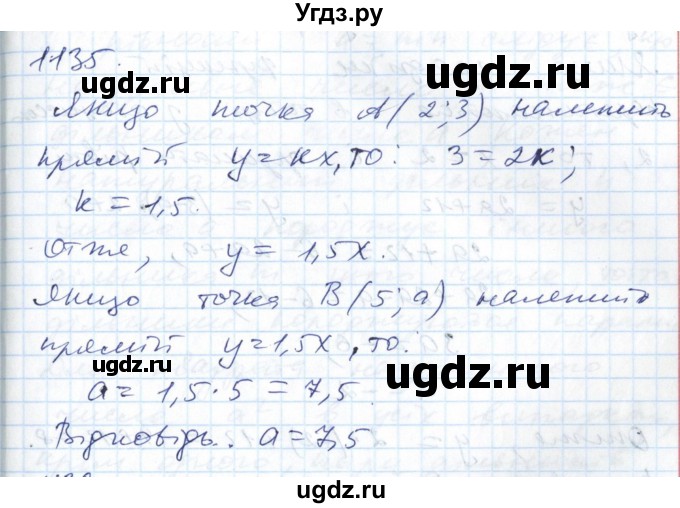 Угдз.ру
1135.
ugdz.ru
Якщо точка A(2;3) належить
прямій y=kx, то: 3=2k;
ugdz.ru
k=1,5.
Отже, y=1,5x.
Якщо точка B(5;a) належить
прямій y=1,5x, то:
ugdz.ru
ugdz.ru
a=1,5·5=7,5.
Відповідь: a=7,5
ugdz.ru
ugdz.ru